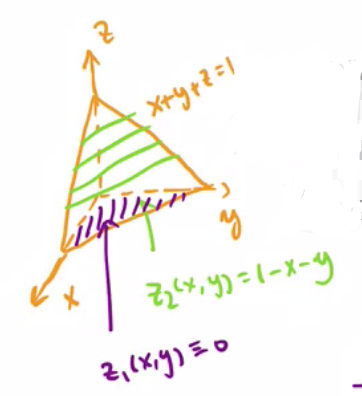 z
x+y+z=1
y
x
z₂(x,y)=1-x-y
z₁(x,y)≡0